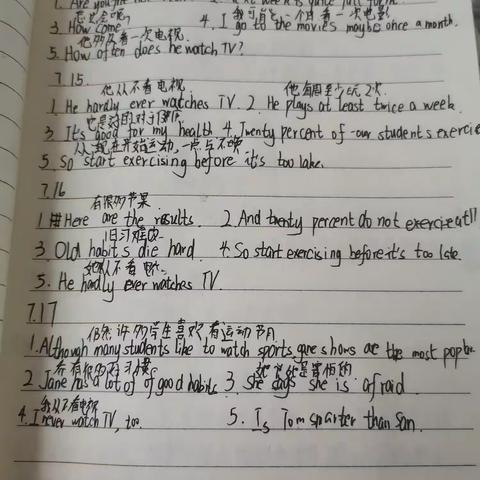 怎么会呢?
我可能一个月看一次电影
3. How come 4. I go to the movies maybe once a month.
他多久看一次电视
5. How often does he watch TV?
7.15.
他从不看电视. 他每周至少玩2次.
1. He hardly ever watches TV. 2. He plays at least twice a week.
3. It's good for my health 4. Twenty percent of our students exercise
5. So start exercising before it's too lake.
7.16
有很多节果
1. Here are the results. 2. And twenty percent do not exercise at all
旧习难改
3. Old habits die hard. 4. So start exercising before it's too late.
她从不看电视
5. He hardly ever watches TV.
7.17
仍然许多学生喜欢看运动节目
1. Although many students like to watch sports, game shows are the most
2. Jane has a lot of of good habits. 3. She says she is afraid.
我从不看电视
4. I never watch TV, too. 5. Is Tom smarter than San.